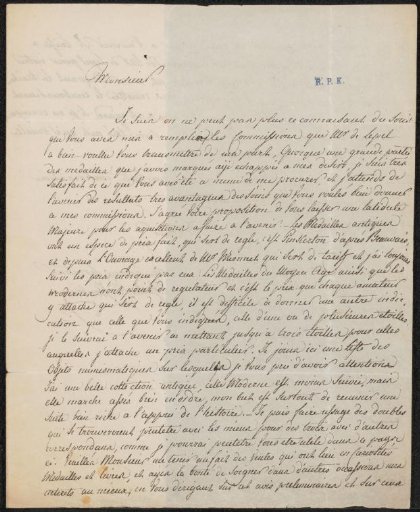 R. P. K.
Monsieur
Je suis on ne peut pas plus reconnaissant des soins
que Vous avés mis a remplir les Commissions que Mr de
a bien voulu vous transmettre de ma part, quoique une grande partie
des medailles que j'avois marqués ayt échappé a mes desirs je suis très
satisfait de ce que Vous avés été a meme de me procurer et j'attends de
l'avenir des resultats tres avantageux des soins que vous voulés bien donner
a mes commissions. J'agrée Votre proposition de Vous laisser une latitude
Majeure pour les aquisitions a faire a l'avenir. Les Medailles antiques
ont un espece de prix fait, qui sert de regle, d'apres Beauvais
et depuis l'Ouvrage excellent de Mr Mionnet qui sert de tariff et j'ai toujours
suivi les prix indiqué par eux. Les Medailles du Moyen Age ainsi que les
modernes n'ont point de regulateur et c'est le prix que chaque amateur
y attache qui sert de regle, il est difficile de donner une autre indi-
cation que celle que Vous indiquez, celle d'une ou de plusieurs etoiles
je le suivrai a l'avenir en mettant jusqu'a trois étoiles pour celles
auxquelles j'attache un prix particulier. Je joins ici une liste des
objets numismatiques sur lesquels je Vous prie d'avoir attention
J'ai une belle collection antique, celle Moderne est moins suivie, mais
elle marche assés bien en ordre, mon but est surtout de reunir une
suite bien riche a l'appui de l'histoire. Je puis faire usage des doubles
qui se trouveront peutetre avec les miens pour des trocs avec d'autres
correspondans, comme je pourrai peutetre Vous etre utile dans ce pays
ci. Veuillez Monsieur me tenir au fait des ventes qui ont lieu en
Medailles et livres, et ayez la bonté de soigner dans d'autres occasions mes
interets au mieux, en Vous dirigeant sur cet avis preliminaire et sur ceux